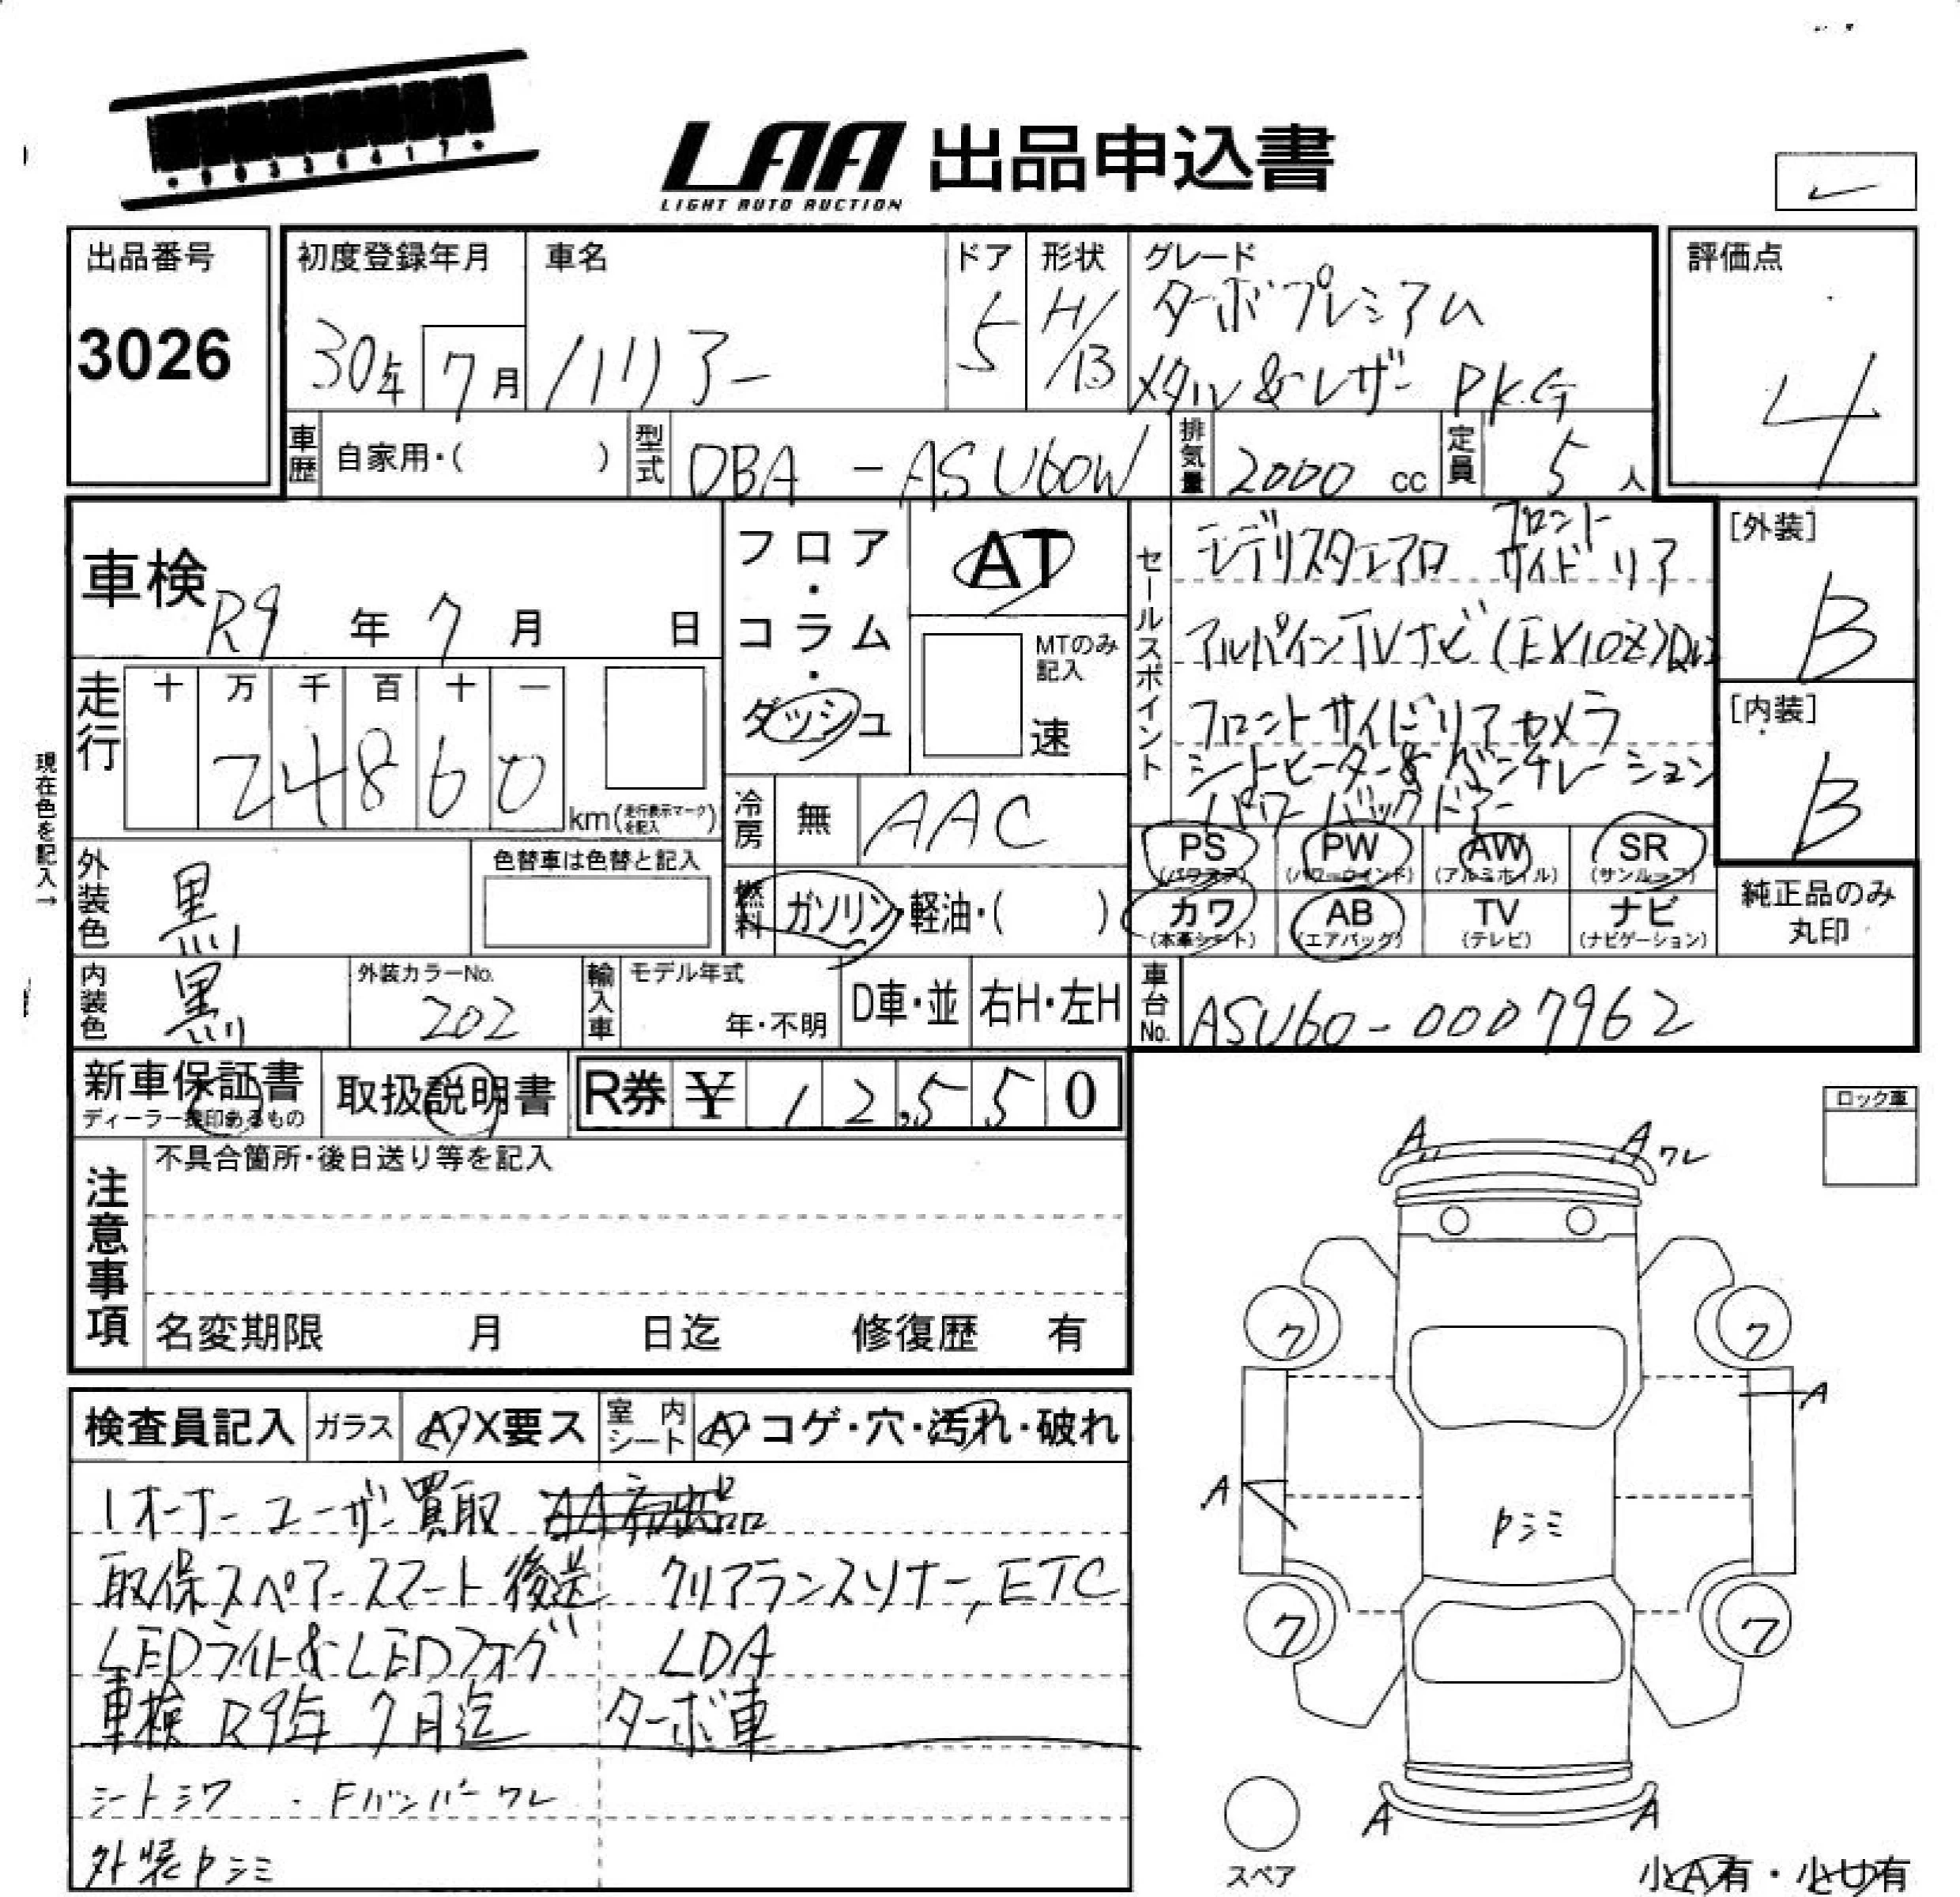 LAA 出品申込書
LIGHT AUTO AUCTION
出品番号
3026
初度登録年月
30年 7月
車名
ハリアー
ドア
5
形状
H/B
グレード
ターボプレミアム
メタル&レザー PKG
評価点
4
車歴 自家用・( )
型式 DBA-ASU60W
排気量 2000 cc
定員 5 人
車検 R9 年 7 月 日
フロア・コラム・ダッシュ
AT
MTのみ記入
速
セールスポイント
モデリスタエアロ フロント サイド リア
アルパインTVナビ(EX10Z)
フロントサイドリアカメラ
シートヒーター&ベンチレーション
パワーバックドアー
[外装]
B
[内装]
B
走行
十 万 千 百 十 一
24860
km(走行表示マークを記入)
現在色を記入→
冷房 無 AAC
外装色 黒
色替車は色替と記入
燃料 ガソリン・軽油・( )
PS (パワステ) PW (パワーウインド) AW (アルミホイル) SR (サンルーフ)
カワ (本革シート) AB (エアバッグ) TV (テレビ) ナビ (ナビゲーション)
純正品のみ丸印
内装色 黒
外装カラーNo. 202
輸入車 モデル年式 年・不明
D車・並 右H・左H
車台No. ASU60-0007962
新車保証書
ディーラー捺印あるもの
取扱説明書
R券 ¥ 12,550
ロック車
注意事項
不具合箇所・後日送り等を記入
名変期限 月 日迄 修復歴 有
検査員記入 ガラス A・X要ス 室内シート A・コゲ・穴・汚れ・破れ
1オーナー ユーザー買取 AA初出品
取保スペアースマート後送 クリアランスソナー,ETC
LEDライト&LEDフォグ LDA
車検 R9年 7月迄 ターボ車
シートシワ ・Fバンパーワレ
外装Pシミ
A A ワレ
ク ク
A
A
Pシミ
ク ク
A A
スペア
小A有・小U有